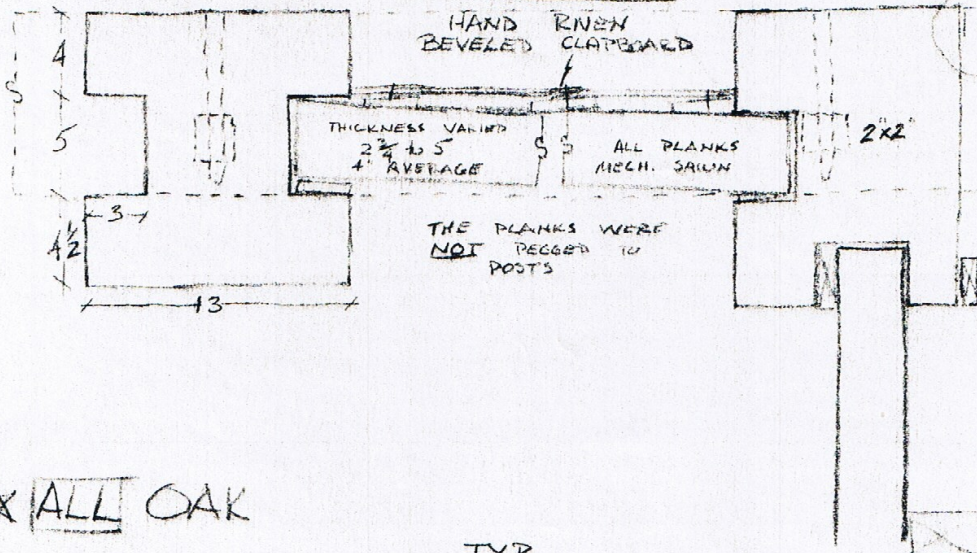 HAND RIVEN
BEVELED CLAPBOARD
4
5
THICKNESS VARIED
2 3/4 to 5
4" AVERAGE
ALL PLANKS
MECH. SAWN
2"x2"
3
4 1/2
13
THE PLANKS WERE
NOT PEGGED TO
POSTS
ALL OAK
TYP